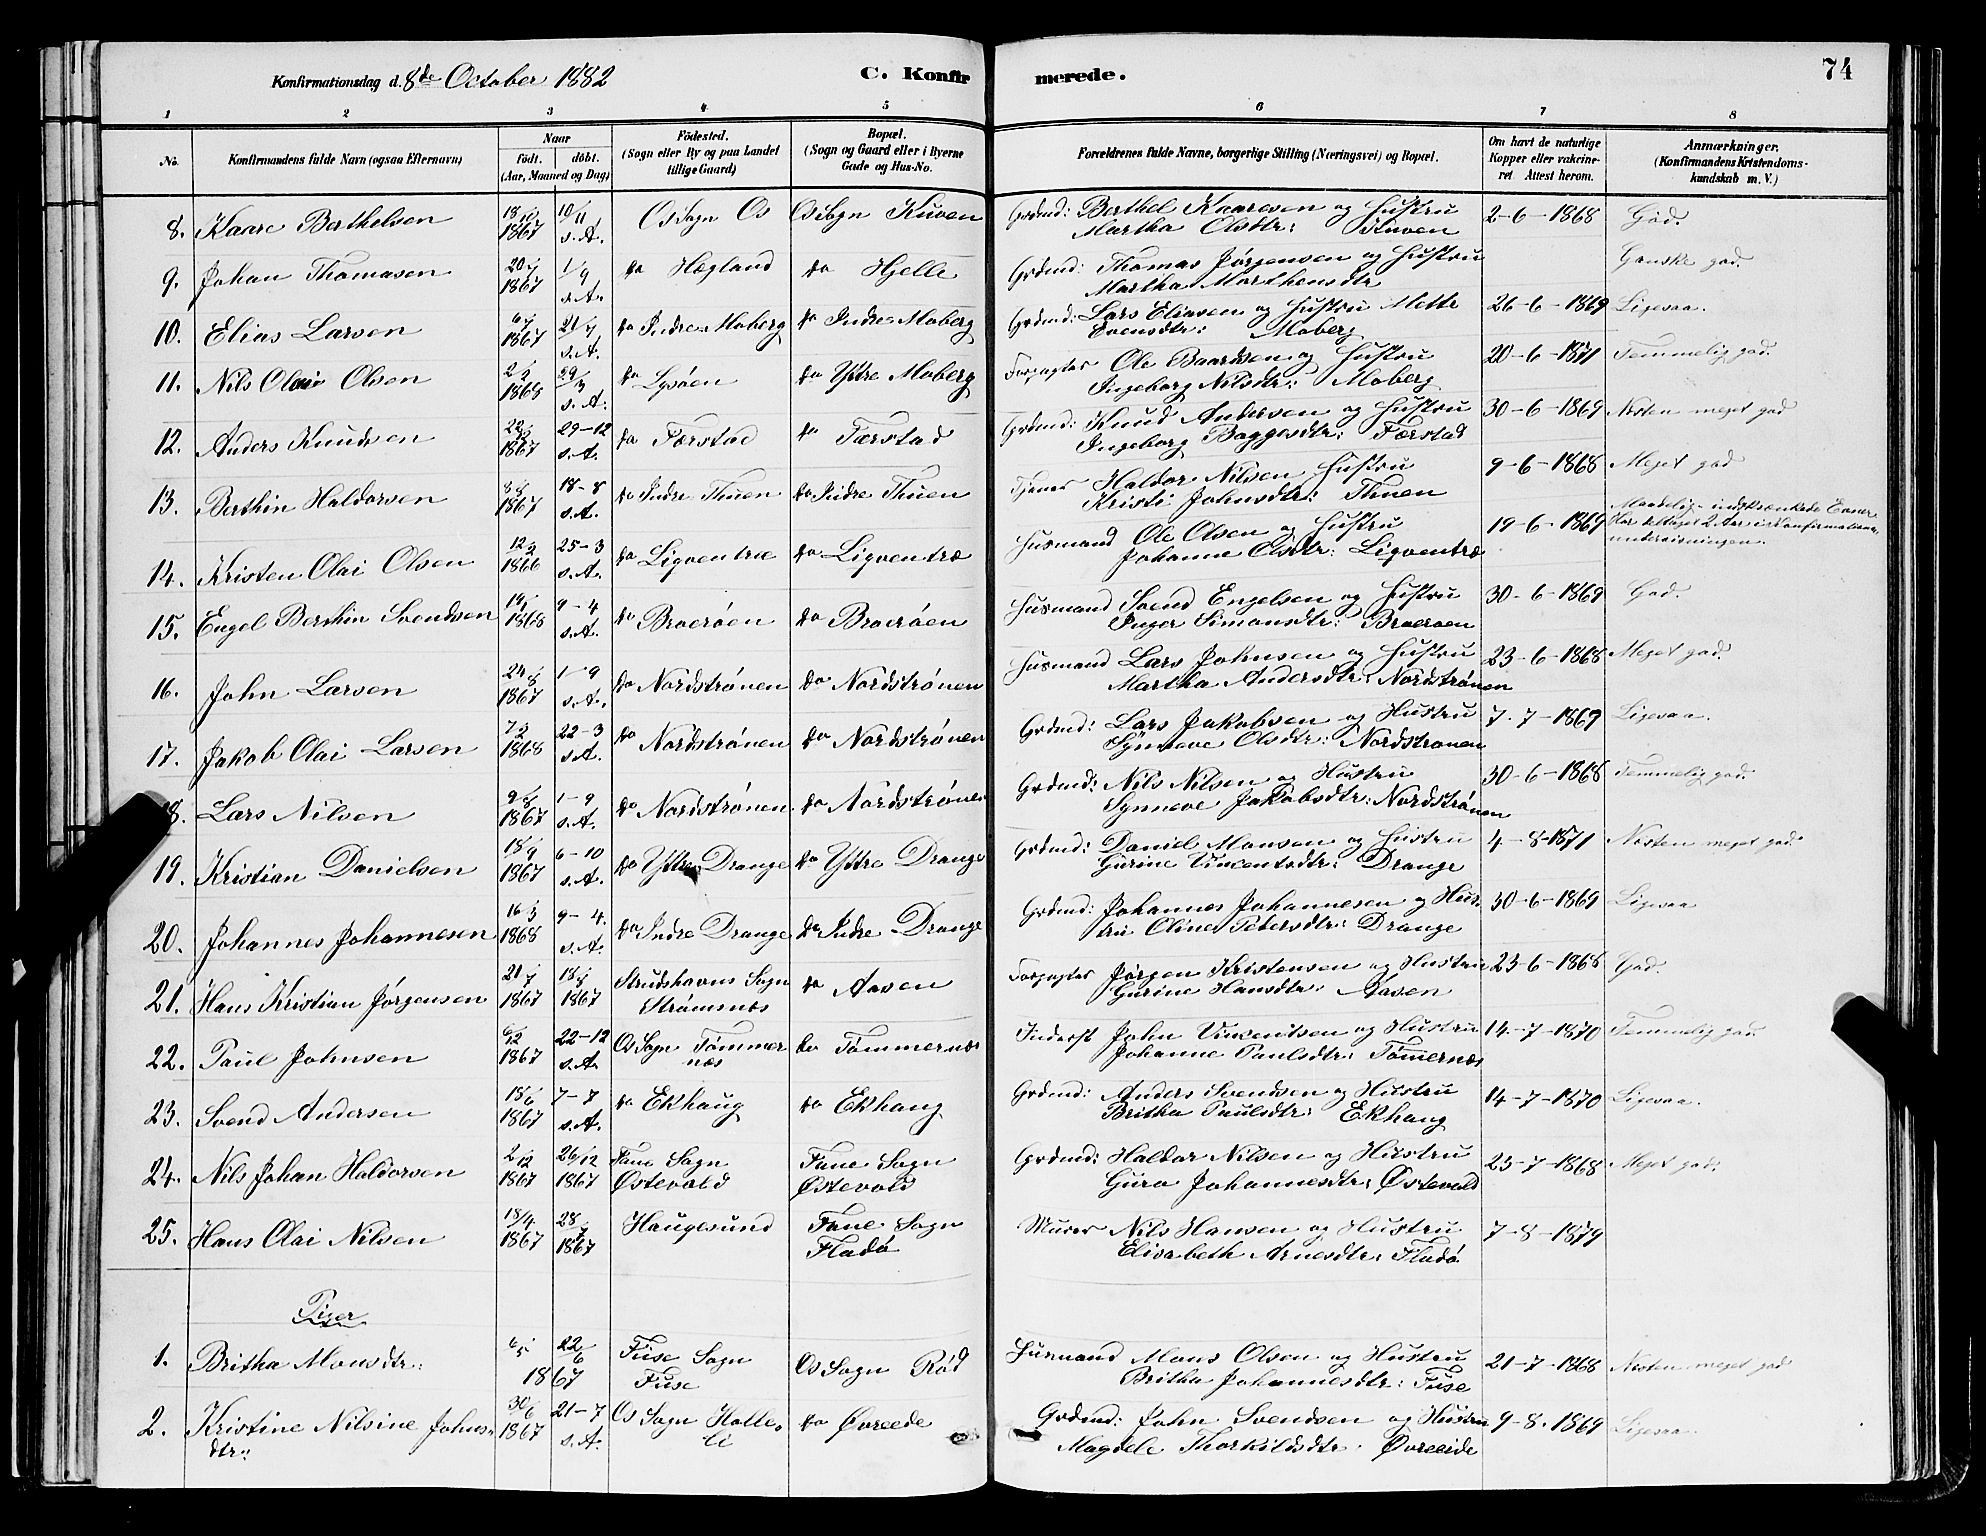 Konfirmationsdag d. 8de October 1882
C. Konfirmerede.
74
1 2 3 4 5 6 7 8
No. Konfirmandens fulde Navn (ogsaa Efternavn) Naar födt. döbt. (Aar, Maaned og Dag) Födested. (Sogn eller By og paa Landet tillige Gaard) Bopæl. (Sogn og Gaard eller i Byerne Gade og Hus-No. Forældrenes fulde Navne, borgerlige Stilling (Næringsvei) og Bopæl. Om havt de naturlige Kopper eller vakcineret Attest herom. Anmærkninger. (Konfirmandens Kristendomskundskab m. V.)
8. Kaare Berthelsen 1867 10/11 s. A. Os Sogn Os Os Sogn Kuven Grdmd: Berthel Kaaresen og Hustru Martha Olsdtr: Kuven 2-6-1868 God.
9. Johan Thomasen 20/7 1867 1/9 s. A. do Hegland do Hjelle Grdmd: Thomas Jørgensen og Hustru Martha Marthensdtr Ganske god.
10. Elias Larsen 6/7 1867 21/7 s. A. do Indre Moberg do Indre Moberg Grdmd: Lars Eliasen og Hustru Mette Evensdtr: Moberg 26-6-1869 Ligesaa.
11. Nils Olai Olsen 1868 29/3 s. A. do Lysøen do Ytre Moberg Forpagter Ole Baardsen og Hustru Ingeborg Nilsdtr: Moberg 20-6-1871 Temmelig god.
12. Anders Knudsen 1867 29-12 s. A. do Færstad do Færstad Grdmd: Knud Andersen og Hustru Ingeborg Baggesdtr: Færstad 30-6-1869 Næsten meget god
13. Berthin Haldorsen 8/8 1867 18-8 s. A. do Indre Thuen do Indre Thuen Tjener Haldor Nilsen Hustru Kristi Johnsdtr: Thuen 9-6-1868 Meget god
14. Kristen Olai Olsen 12/3 1866 25-3 s. A. do Ligventræ do Ligventræ Husmand Ole Olsen og Hustru Johanne Olsdtr: Ligventræ 19-6-1869 Maadelig-indskrænkede Evner Har deltaget 2 Aar i Konfirmationsundervisningen.
15. Engel Berthin Svendsen 1868 9-4 s. A. do Broerøen do Broerøen Husmand Svend Engelsen og Hustru Inger Simonsdtr: Broerøen 30-6-1869 God.
16. John Larsen 24/8 1867 1-9 s. A. do Nordstrønen do Nordstrønen Husmand Lars Johnsen og Hustru Martha Andersdtr: Nordstrønen 23-6-1868 Meget god.
17. Jakob Olai Larsen 7/3 1868 22-3 s. A. do Nordstrønen do Nordstrønen Grdmd: Lars Jakobsen og Hustru Synneve Olsdtr: Nordstrønen 7-7-1869 Ligesaa.
8. Lars Nilsen 9/8 1867 1-9 s. A. do Nordstrønen do Nordstrønen Grdmd: Nils Nilsen og Hustru Synneve Jakobsdtr: Nordstrønen 30-6-1868 Temmelig god.
19. Kristian Danielsen 18/9 1867 6-10 s. A. do Yttre Drange do Yttre Drange Grdmd: Daniel Monsen og Hustru Gurine Vincentsdtr: Drange 4-8-1871 Næsten meget god
20. Johannes Johannesen 16/3 1868 9-4 s. A. do Indre Drange do Indre Drange Grdmd: Johannes Johannesen og Hustru Oline Petersdtr: Drange 30-6-1869 Ligesaa
21. Hans Kristian Jørgensen 1867 1867 Strudshavns Sogn Strømsnæs do Aasen Forpagter Jørgen Kristensen og Hustru Gurine Hansdtr: Aasen 23-6-1868 God.
22. Paul Johnsen 6/12 1867 22-12 s. A. Os Sogn Tømmernæs do Tømmernæs Inderst John Vincentsen og Hustru Johanne Paulsdtr: Tømmernæs 14-7-1870 Temmelig god
23. Svend Andersen 18/6 1867 7-7 s. A. do Ekhaug do Ekhaug Grdmd: Anders Svendsen og Hustru Britha Paulsdtr: Ekhaug 14-7-1870 Ligesaa.
24. Nils Johan Haldorsen 2/12 1867 26/12 1867 Fane Sogn Østevold Fane Sogn Østevold Grdmd: Haldor Nilsen og Hustru Guro Johannesdtr: Østevold 23-7-1868 Meget god.
25. Hans Olai Nilsen 18/4 1867 28/7 1867 Haugesund Fane Sogn Fladø Murer Nils Hansen og Hustru Elisabeth Arnesdtr: Fladø 7-8-1879
Piger
1. Britha Monsdtr: 6/5 22/6 1867 Fuse Sogn Fuse Os Sogn Rød Husmand Mons Olsen og Hustru Britha Johannesdtr: Fuse 21-7-1868 Næsten meget god
2. Kristine Nilsine Johnsdtr: 30/6 1867 21-7 s. A. Os Sogn Holleli do Øvreeide Grdmd: John Svendsen og Hustru Magdele Thorkildsdtr: Øvreeide 9-8-1869 Ligesaa.